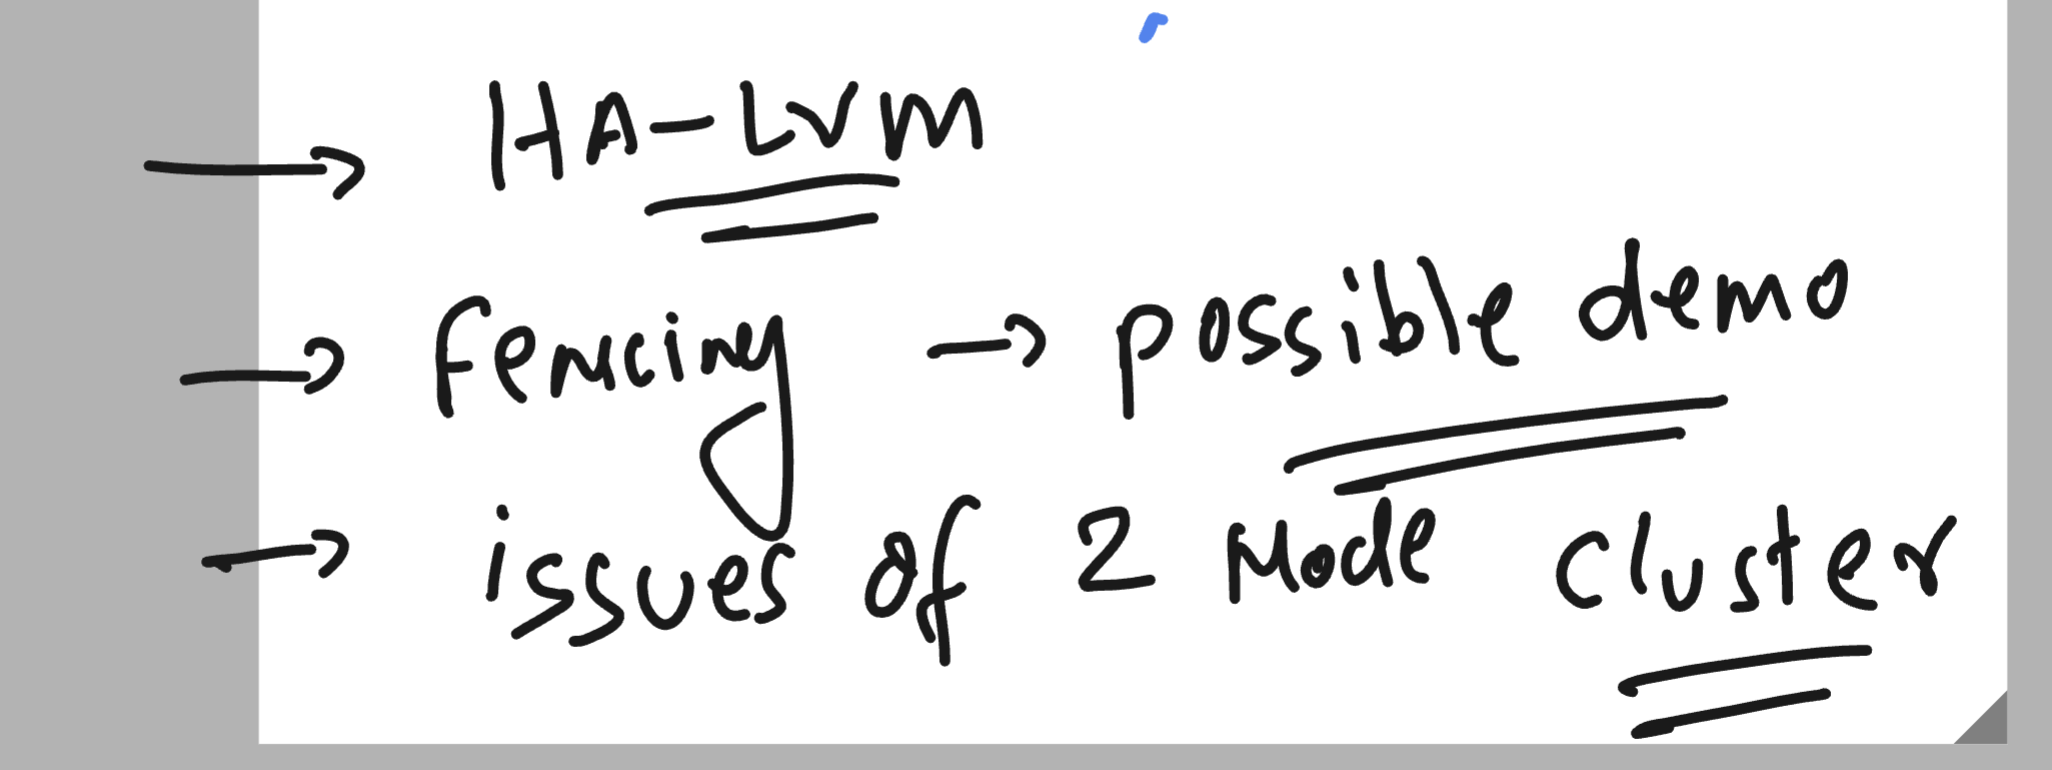 → HA-LVM
→ fencing → possible demo
→ issues of 2 Node cluster